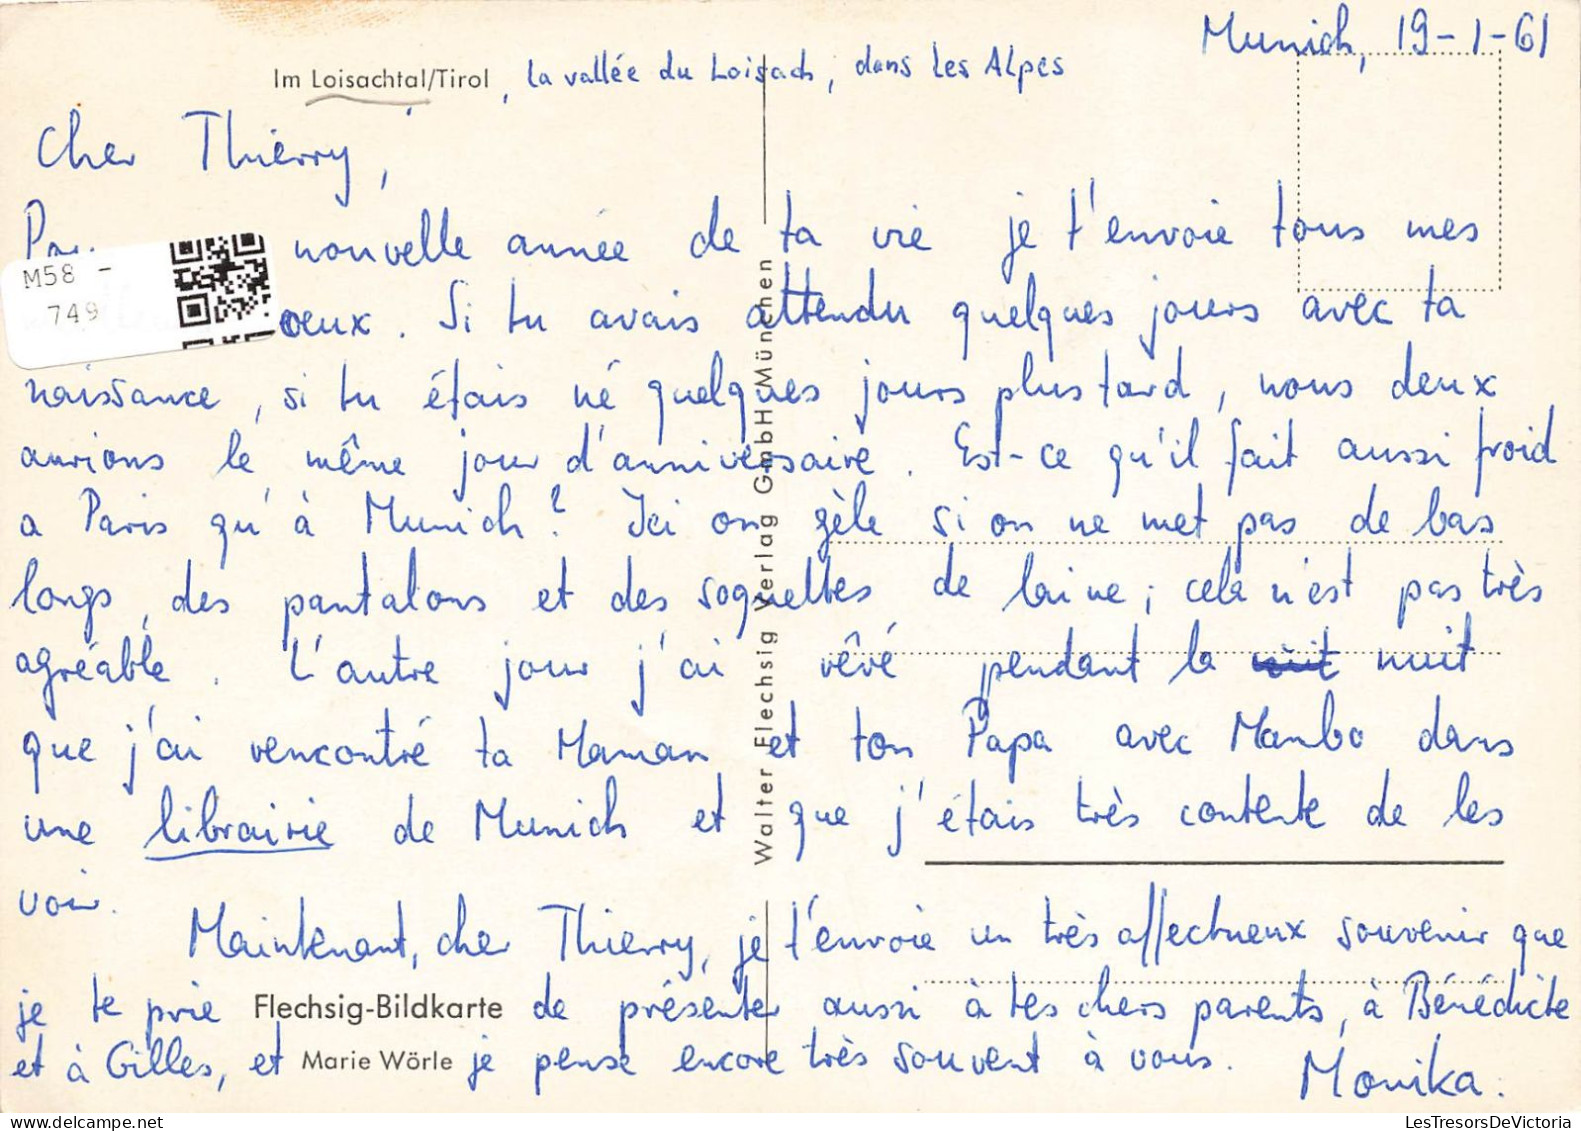 Munich, 19-1-61
Im Loisachtal/Tirol, la vallée du Loisach, dans les Alpes
Cher Thierry,
nouvelle année de ta vie je t'envoie tous mes
M58 -
749
voeux. Si tu avais attendu quelques jours avec ta
naissance, si tu étais né quelques jours plus tard, nous deux
aurions le même jour d'anniversaire. Est-ce qu'il fait aussi froid
a Paris qu'à Munich? Ici on gèle si on ne met pas de bas
longs, des pantalons et des soquettes de laine; cela n'est pas très
agréable. L'autre jour j'ai rêvé pendant la nuit
que j'ai rencontré ta Maman et ton Papa avec Mambo dans
une librairie de Munich et que j'étais très contente de les
voir.
Maintenant, cher Thierry, je t'envoie un très affectueux souvenir que
je te prie Flechsig-Bildkarte de présenter aussi à tes chers parents, à Bénédicte
et à Gilles, et Marie Wörle je pense encore très souvent à vous. Monika.
Walter Flechsig Verlag GmbH München
LesTresorsDeVictoria